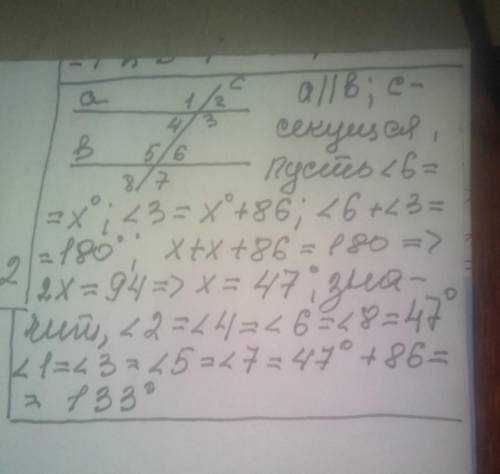 a 1 2 c
4 3
a || b ; c -
секущая,
b 5 6
8 7
пусть ∠6 =
= x°; ∠3 = x° + 86; ∠6 + ∠3 =
= 180°; x + x + 86 = 180 =>
2 2x = 94 => x = 47°; зна-
чит, ∠2 = ∠4 = ∠6 = ∠8 = 47°
∠1 = ∠3 = ∠5 = ∠7 = 47° + 86 =
= 133°